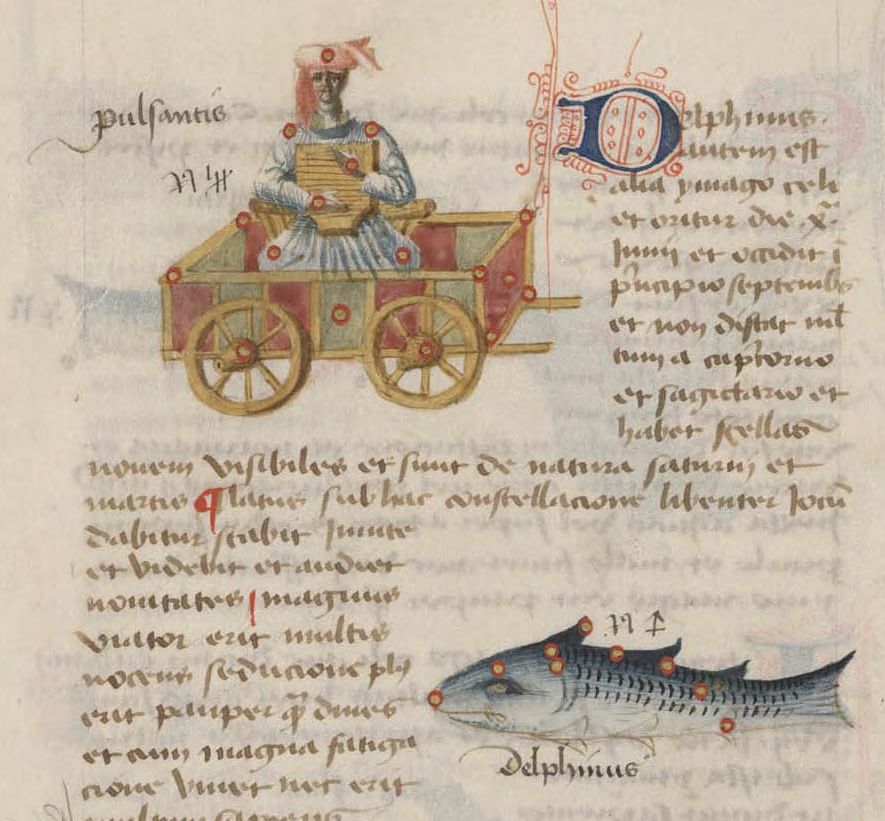 pulsantis
Delphinus.
autem est
alia ymago celi
et oritur die xª.
Junij et occidit i
pncipio septembris
et non distat ml
tum a capricorno
et sagictario et
habet stellas
novem visibiles et sunt de natura saturni et
martis ¶ Natus sub hac constellacione libenter Jocu
dabitur scabit
et videbit et audiet
novitates magnus
viator erit multis
nocens seducione pl9
erit pauper q dives
et cum magna fatiga
cione vivet nec erit
delphinus